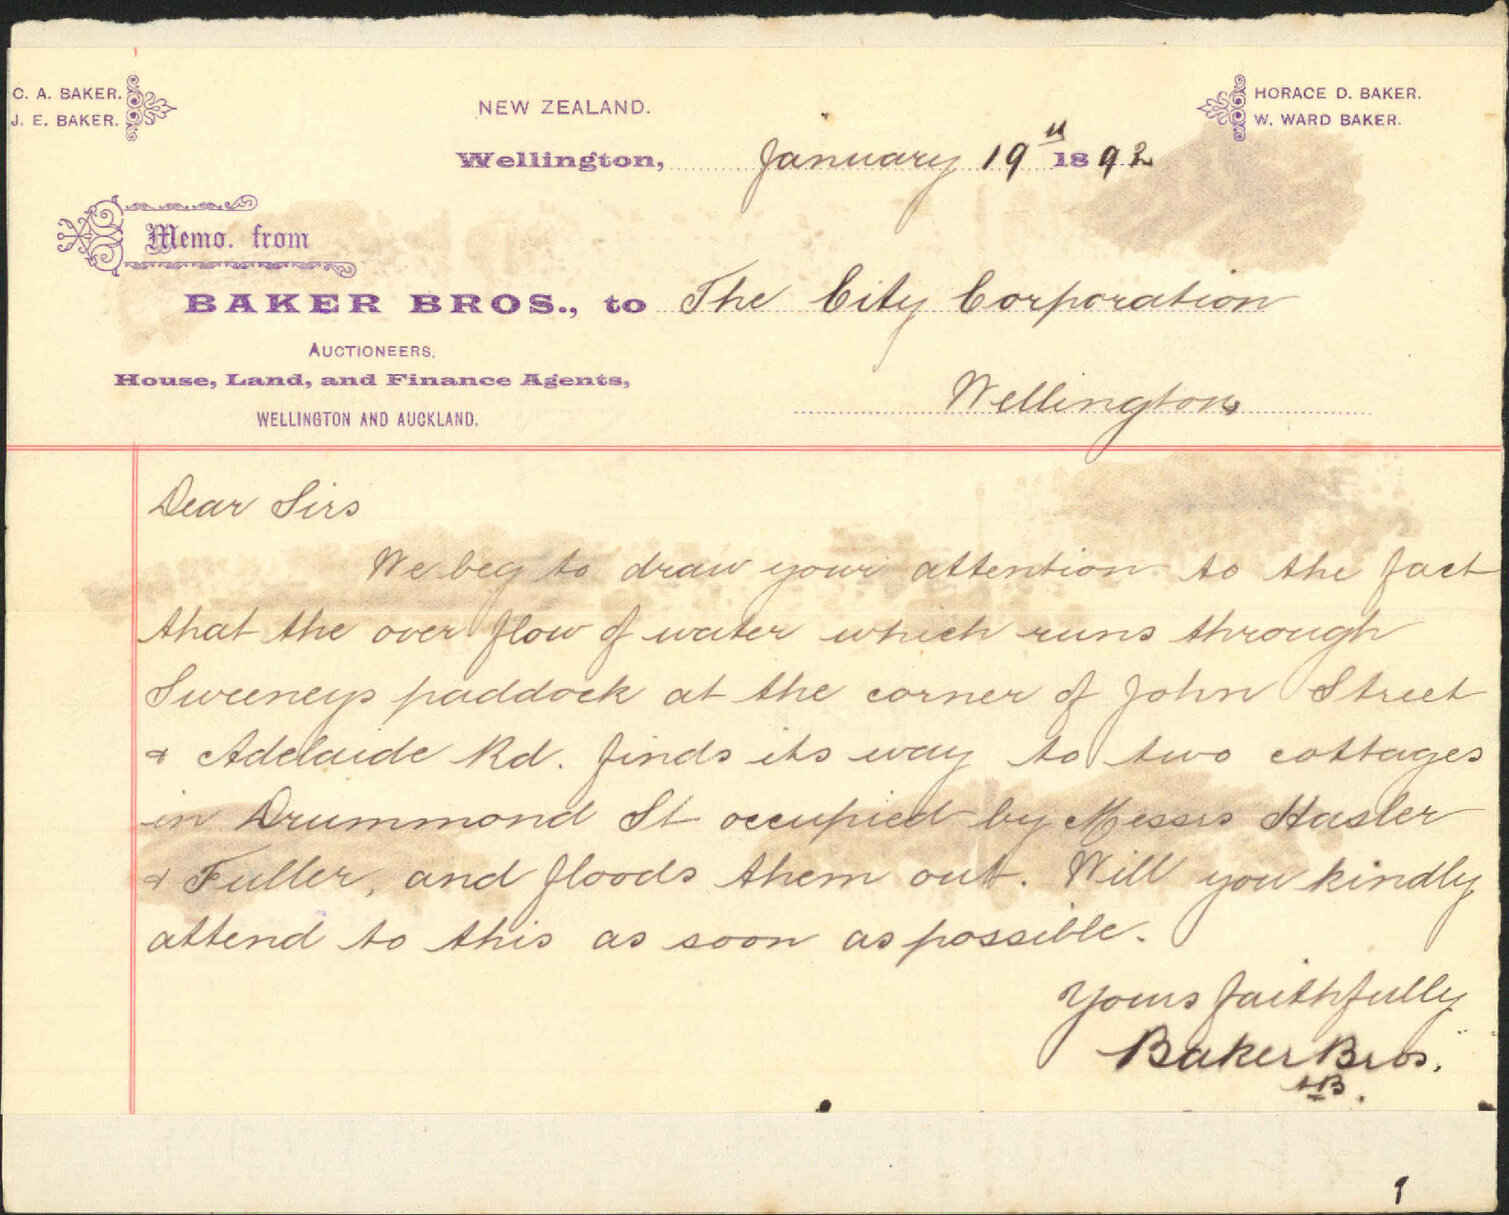 C. A. BAKER.
J. E. BAKER.
NEW ZEALAND.
HORACE D. BAKER.
W. WARD BAKER.
Wellington, January 19th 1892
Memo. from
BAKER BROS., to The City Corporation
AUCTIONEERS,
House, Land, and Finance Agents,
Wellington
WELLINGTON AND AUCKLAND.
Dear Sirs
We beg to draw your attention to the fact
that the over flow of water which runs through
Sweeneys paddock at the corner of John Street
& Adelaide Rd. finds its way to two cottages
in Drummond St occupied by Messrs Hasler
& Fuller, and floods them out. Will you kindly
attend to this as soon as possible.
Yours faithfully
Baker Bros.